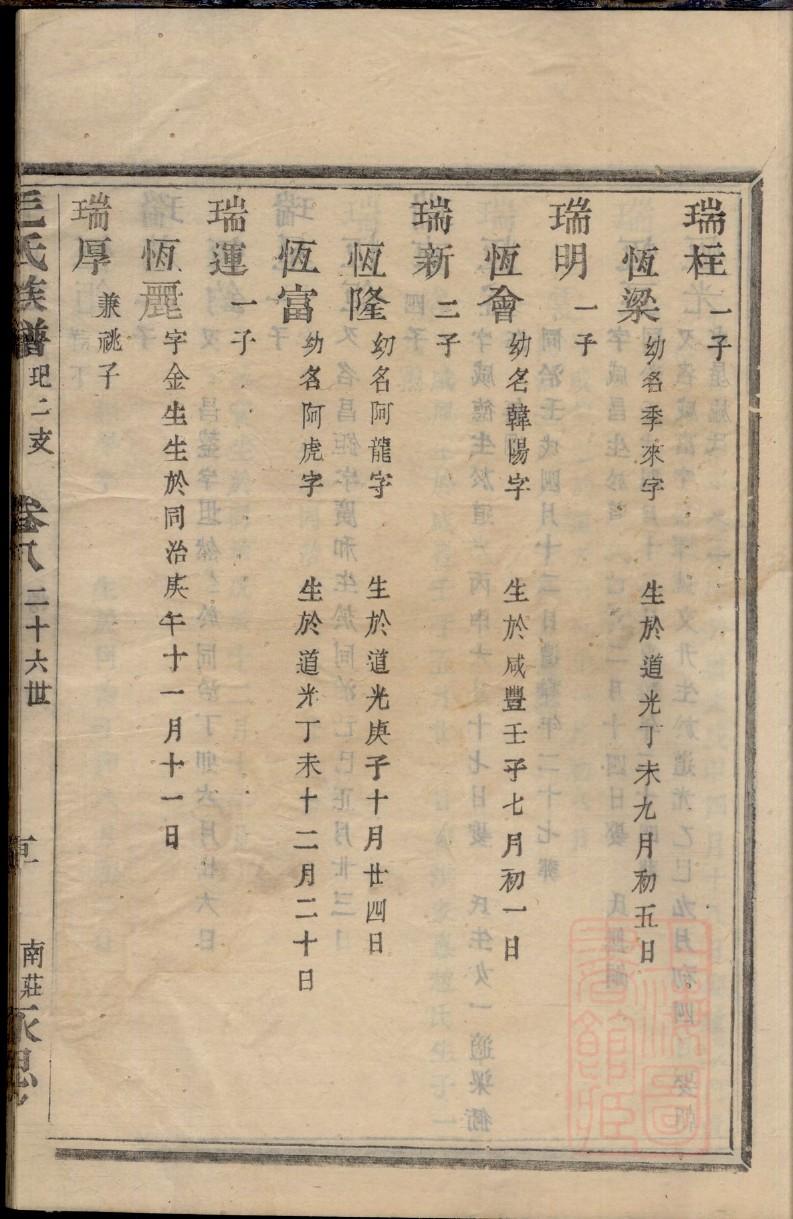 瑞柱 一子
恆梁 幼名季來字 生於道光丁未九月初五日
瑞明 一子
恆會 幼名韓陽字 生於咸豐壬子七月初一日
瑞新 二子
恆隆 幼名阿龍字 生於道光庚子十月廿四日
恆富 幼名阿虎字 生於道光丁未十二月二十日
瑞運 一子
恆麗 字金生生於同治庚午十一月十一日
瑞厚 兼祧子
毛氏族譜 玘二支 卷八 二十六世 南莊永思